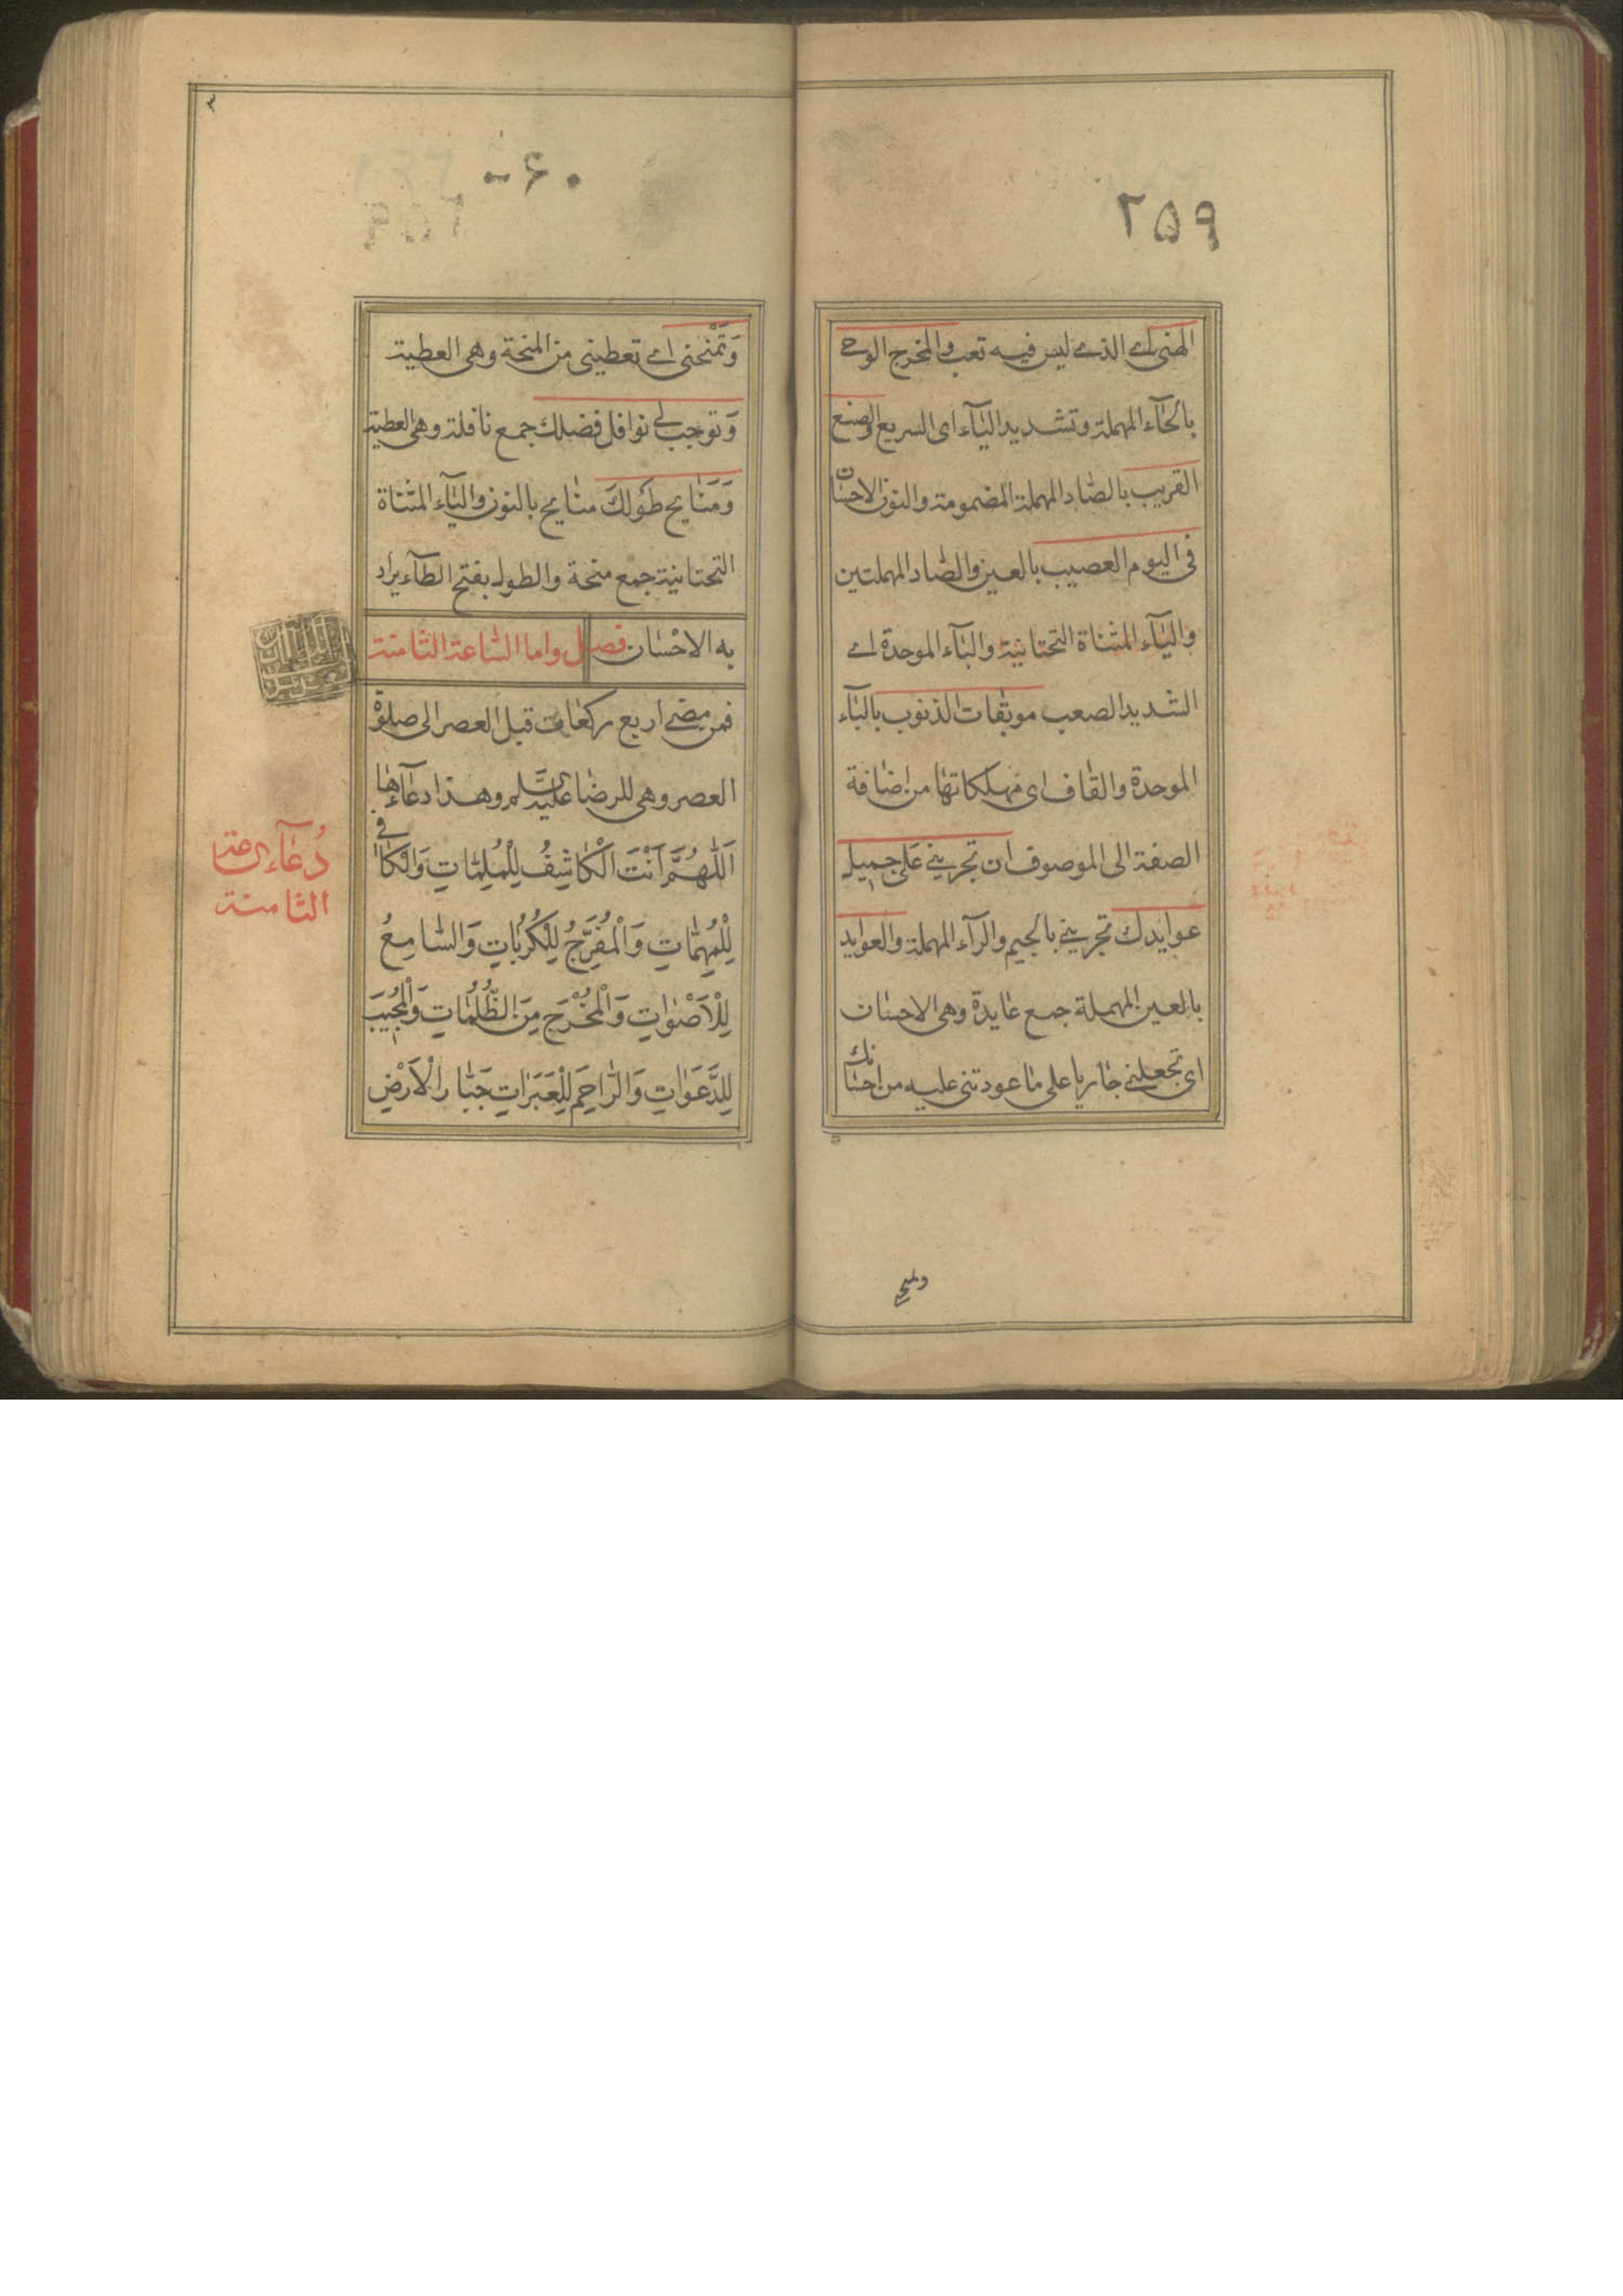 ٢٥٩
الهنى اے الذے ليس فيه تعب والمخرج الوحے
بالحآء المهملة وتشديد اليآء اى السريع والصنع
القريب بالصاد المهملة المضمومة والنون الاحسان
فى اليوم العصيب بالعين والصاد المهملتين
واليآء المثناة التحتانية والبآء الموحدة اے
الشديد الصعب موبقات الذنوب بالبآء
الموحدة والقاف اى مهلكاتها من اضافة
الصفة الى الموصوف ان تجرينے على جميل
عوايدك تجرينے بالجيم والرآء المهملة والعوايد
بالعين المهملة جمع عايدة وهى الاحسان
اى تجعلنے جاريا على ما عودتنى عليه من احسانك
٠۶٠
وَتَمْنَحَنى اے تعطينى من المنحة وهى العطية
وَتوجب لے نوافل فضلك جمع نافلة وهى العطية
وَمَنَايح طَوْلكَ منايح بالنون واليآء المثناة
التحتانية جمع منحة والطول بفتح الطآء يراد
به الاحسان فصل واما الساعة الثامنة
فمن مضے اربع ركعات قبل العصر الى صلوة
العصر وهى للرضا عليه السلم وهذا دعآءها
اَللّٰهُمَّ اَنْتَ الْكَاشِفُ لِلْمُلِمَّاتِ وَالْكَافى
لِلْمُهِمَّاتِ وَالْمُفَرِّجُ لِلْكُرُبَاتِ وَالسَّامِعُ
لِلْاَصْوَاتِ وَالْمُخْرِجُ مِنَ الظُّلُمَاتِ وَالْمُجيبَ
لِلدَّعَوَاتِ وَالرَّاحِمَ لِلْعَبَرَاتِ جَبَّار الْاَرْضِ
دُعَآء ساعة
الثامنة